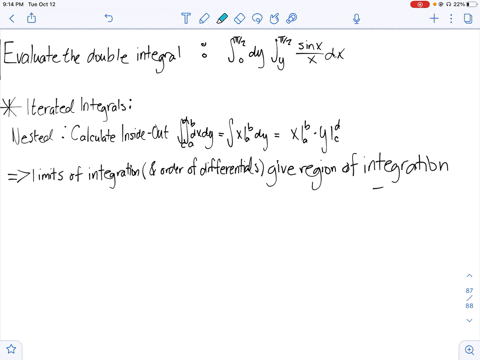 9:14 PM Tue Oct 12
22%
Evaluate the double integral : ∫₀^π/2 dy ∫_y^π/2 sinx/x dx
* Iterated Integrals:
Nested : Calculate Inside-Out ∫_c^d∫_a^b dxdy = ∫ x|_a^b dy = x|_a^b · y|_c^d
=> limits of integration (& order of differentials) give region of integration
87
/
88